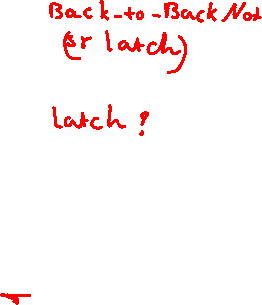 Back-to-Back Not
(sr latch)
latch ?